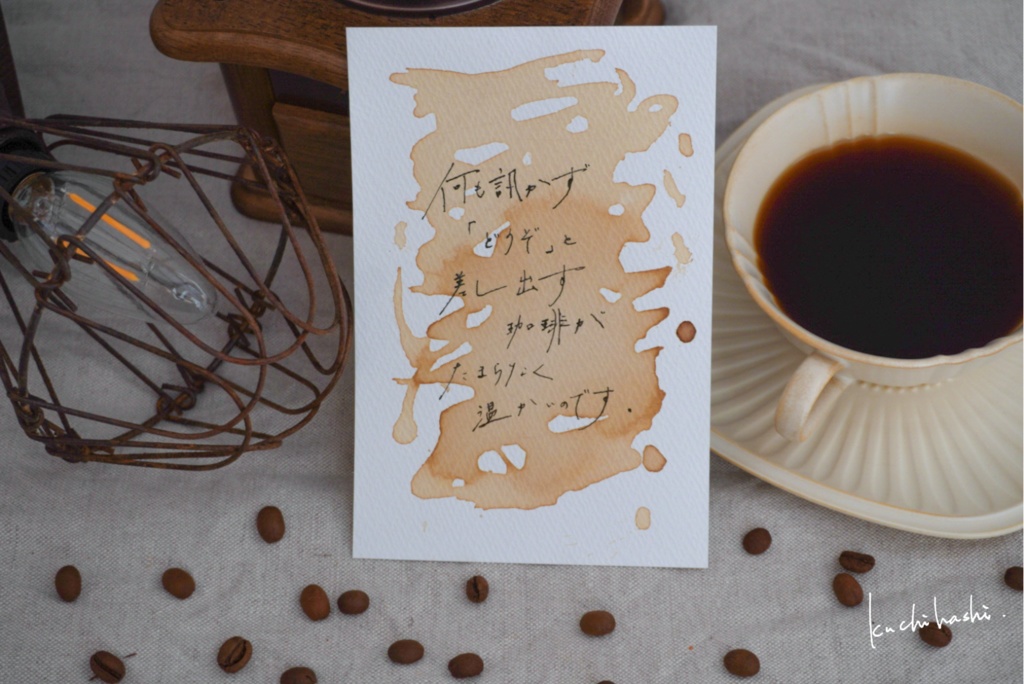 何も訊かず
「どうぞ」と
差し出す
珈琲が
たまらなく
温かいのです.
kuchihashi.